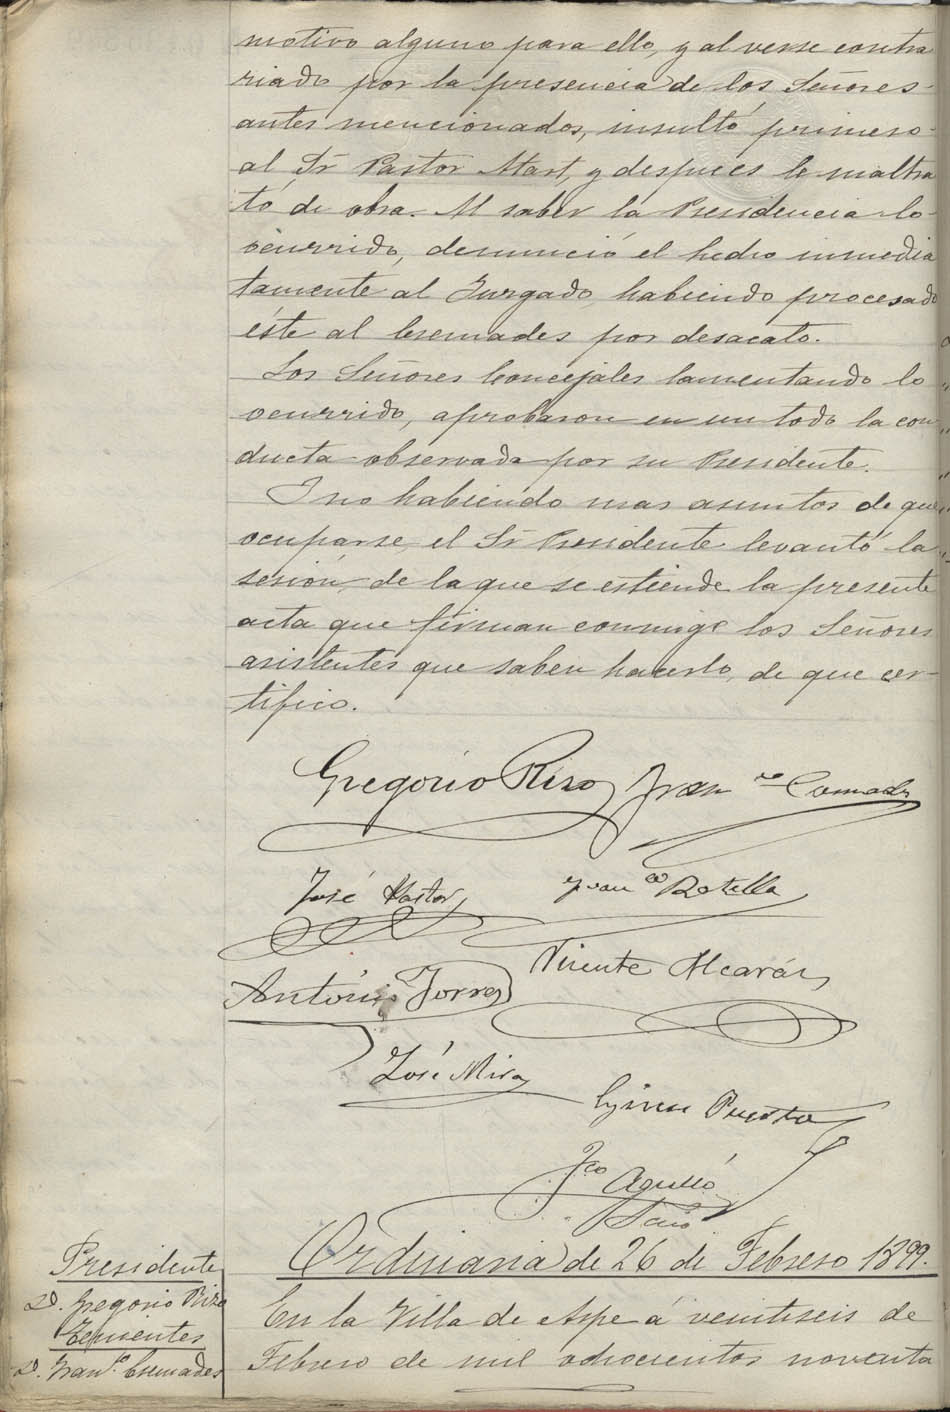 motivo alguno para ello, y al verse contra
riado por la presencia de los Señores
antes mencionados, insultó primero
al Sr Pastor Mart, y despues le maltra
tó de obra. Al saber la Presidencia lo
ocurrido, denunció el hecho inmedia
tamente al Juzgado, habiendo procesado
éste al Cremades por desacato.
Los Señores Concejales lamentando lo
ocurrido, aprobaron en un todo la con
ducta observada por su Presidente.
I no habiendo mas asuntos de que
ocuparse, el Sr Presidente levantó la
sesión, de la que se estiende la presente
acta que firman conmigo los Señores
asistentes que saben hacerlo, de que cer-
tifico.
Gregorio Rizo Franco Cremades
José Pastor
Franco Botella
Vicente Alcaráz
Antonio Torres
José Mira
Gines Puerto
Fco Agulló
Srio
Ordinaria de 26 de Febrero 1899.
Presidente
D. Gregorio Rizo
Tenientes
D. Franco Cremades
En la Villa de Aspe á veintiseis de
Febrero de mil ochocientos noventa